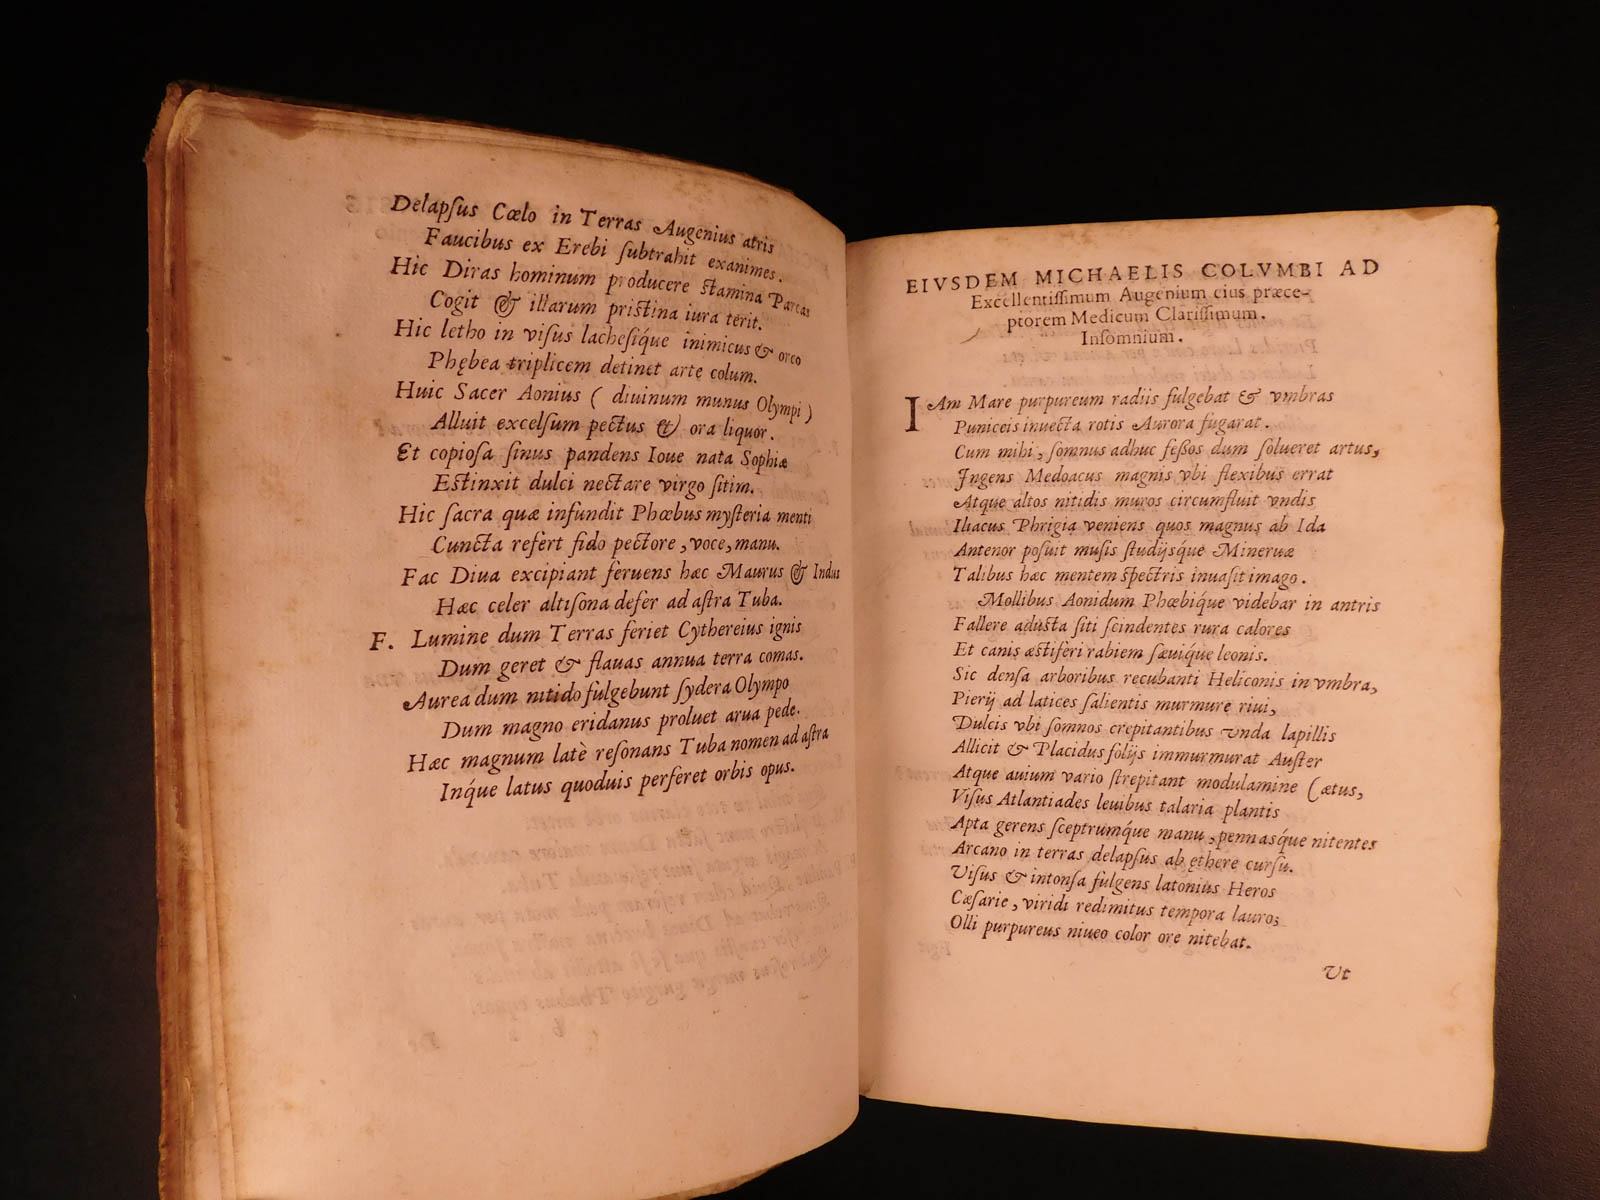 Delapſus Cœlo in Terras Augenius atris
Faucibus ex Erebi ſubtrahit exanimes.
Hic Diras hominum producere ſtamina Parcas
Cogit & illarum priſtina iura terit.
Hic letho in viſus lacheſiq́ue inimicus & orco
Phębea triplicem detinet arte colum.
Huic Sacer Aonius ( diuinum munus Olympi )
Alluit excelſum pectus & ora liquor.
Et copioſa ſinus pandens Ioue nata Sophiæ
Eſtinxit dulci nectare virgo ſitim.
Hic ſacra quæ infundit Phœbus myſteria menti
Cuncta refert fido pectore, voce, manu.
Fac Diua excipiant feruens hæc Maurus & Indus
Hæc celer altiſona defer ad aſtra Tuba.
F. Lumine dum Terras feriet Cythereius ignis
Dum geret & flauas annua terra comas.
Aurea dum nitido fulgebunt ſydera Olympo
Dum magno eridanus proluet arua pede.
Hæc magnum latè reſonans Tuba nomen ad aſtra
Inq́ue latus quoduis perferet orbis opus.
EIVSDEM MICHAELIS COLVMBI AD
Excellentiſſimum Augenium eius præce-
ptorem Medicum Clariſſimum.
Inſomnium.
IAm Mare purpureum radiis fulgebat & vmbras
Puniceis inuecta rotis Aurora fugarat.
Cum mihi, ſomnus adhuc feſſos dum ſolueret artus,
Ingens Medoacus magnis vbi flexibus errat
Atque altos nitidis muros circumfluit vndis
Iliacus Phrigia veniens quos magnus ab Ida
Antenor poſuit muſis ſtudijsq́ue Mineruæ
Talibus hæc mentem ſpectris inuaſit imago.
Mollibus Aonidum Phœbiq́ue videbar in antris
Fallere aduſta ſiti ſcindentes rura calores
Et canis æſtiferi rabiem ſæuiq́ue leonis.
Sic denſa arboribus recubanti Heliconis in vmbra,
Pierij ad latices ſalientis murmure riui,
Dulcis vbi ſomnos crepitantibus vnda lapillis
Allicit & Placidus folijs immurmurat Auſter
Atque auium vario ſtrepitant modulamine (ætus,
Viſus Atlantiades leuibus talaria plantis
Apta gerens ſceptrumq́ue manu, pennasq́ue nitentes
Arcano in terras delapſus ab ęthere curſu.
Viſus & intonſa fulgens latonius Heros
Cæſarie, viridi redimitus tempora lauro;
Olli purpureus niueo color ore nitebat.
Vt